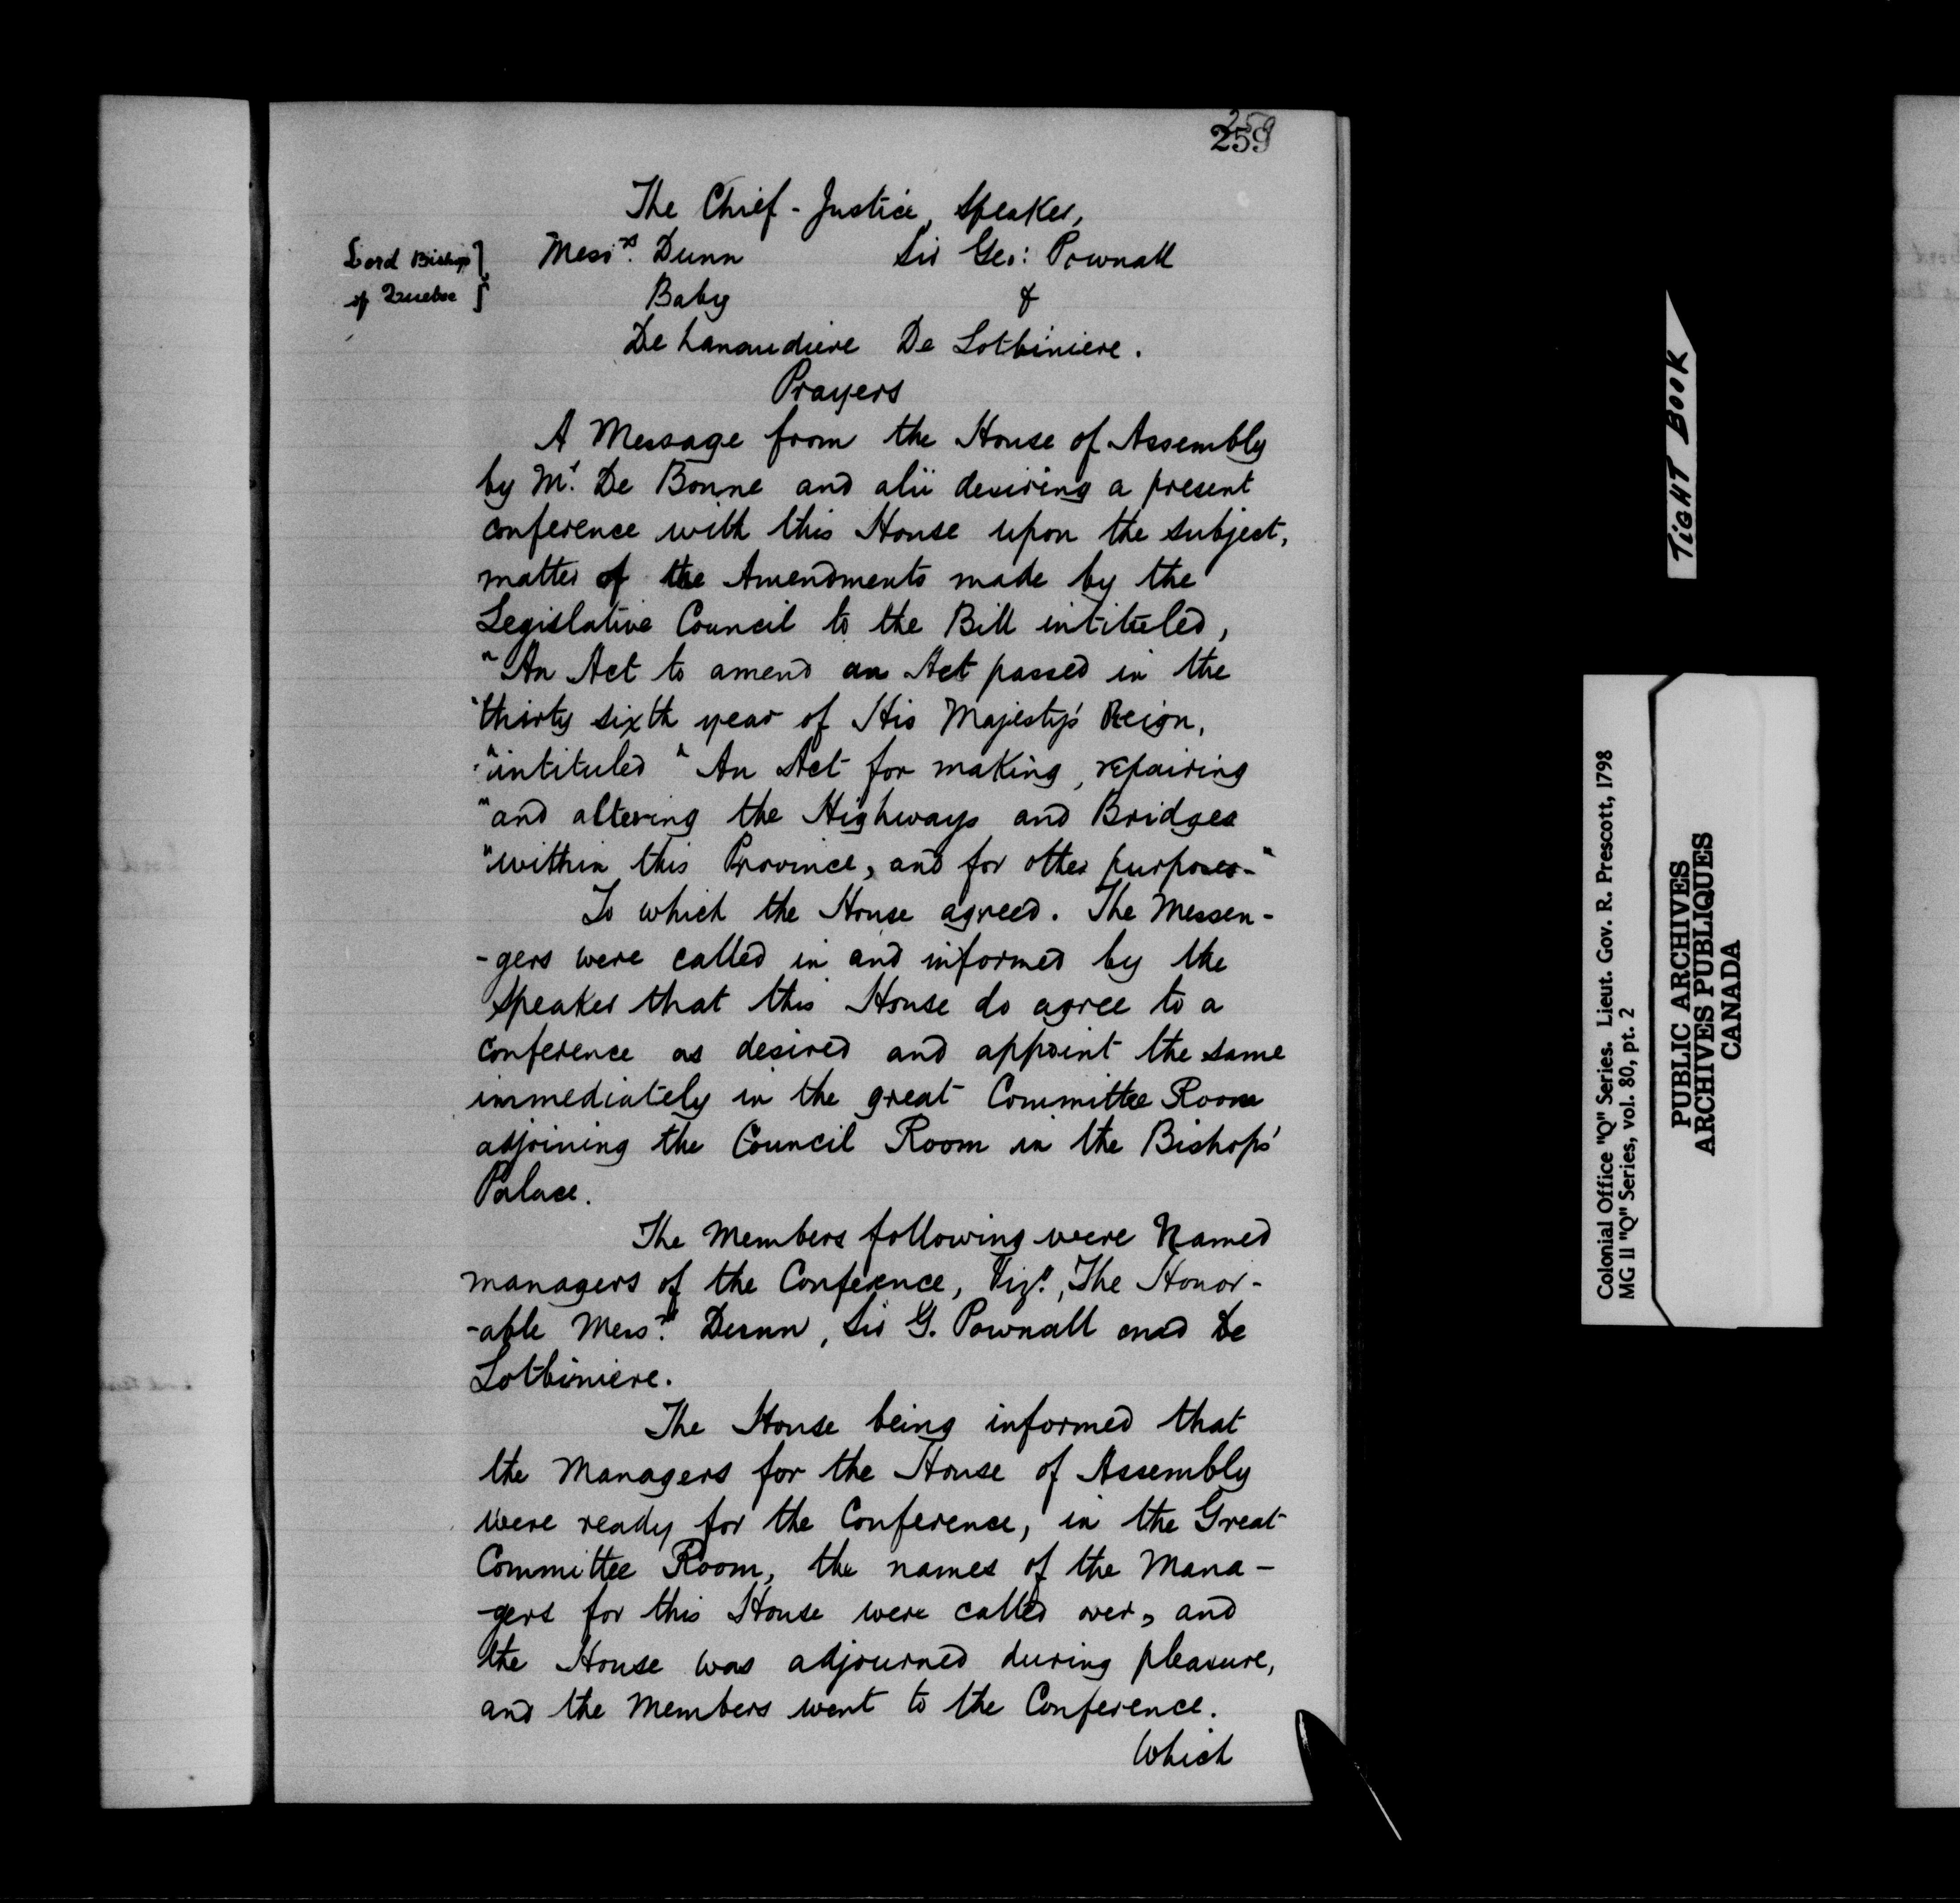 259
259
The Chief-Justice, Speaker,
Lord Bishop
of Quebec
Messrs. Dunn Sir Geo: Pownall
Baby &
De Lanaudiere De Lotbiniere.
Prayers
A Message from the House of Assembly
by Mr. De Bonne and alii desiring a present
conference with this House upon the subject,
matter of the Amendments made by the
Legislative Council to the Bill intituled,
"An Act to amend an Act passed in the
"thirty sixth year of His Majesty's Reign,
"intituled "An Act for making, repairing
"and altering the Highways and Bridges
"within this Province, and for other purposes-"
To which the House agreed. The Messen-
-gers were called in and informed by the
Speaker that this House do agree to a
conference as desired and appoint the same
immediately in the great Committee Room
adjoining the Council Room in the Bishops'
Palace.
The Members following were Named
managers of the Conference, Vizt., The Honor-
-able Messrs. Dunn, Sir G. Pownall and De
Lotbiniere.
The House being informed that
the Managers for the House of Assembly
were ready for the Conference, in the Great
Committee Room, the names of the Mana-
-gers for this House were called over, and
the House was adjourned during pleasure,
and the Members went to the Conference.
Which
TIGHT BOOK
Colonial Office "Q" Series. Lieut. Gov. R. Prescott, 1798
MG II "Q" Series, vol. 80, pt. 2
PUBLIC ARCHIVES
ARCHIVES PUBLIQUES
CANADA